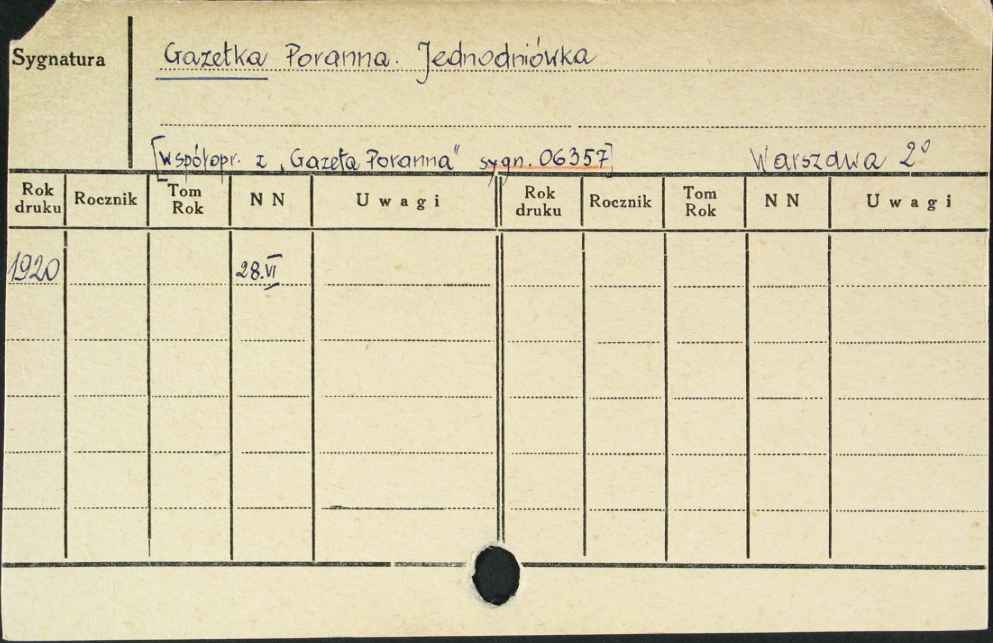 Sygnatura Gazetka Poranna. Jednodniówka
[współopr. z „Gazeta Poranna" sygn. 06357] Warszawa 2°
Rok druku Rocznik Tom Rok NN Uwagi Rok druku Rocznik Tom Rok NN Uwagi
1920 28.VI